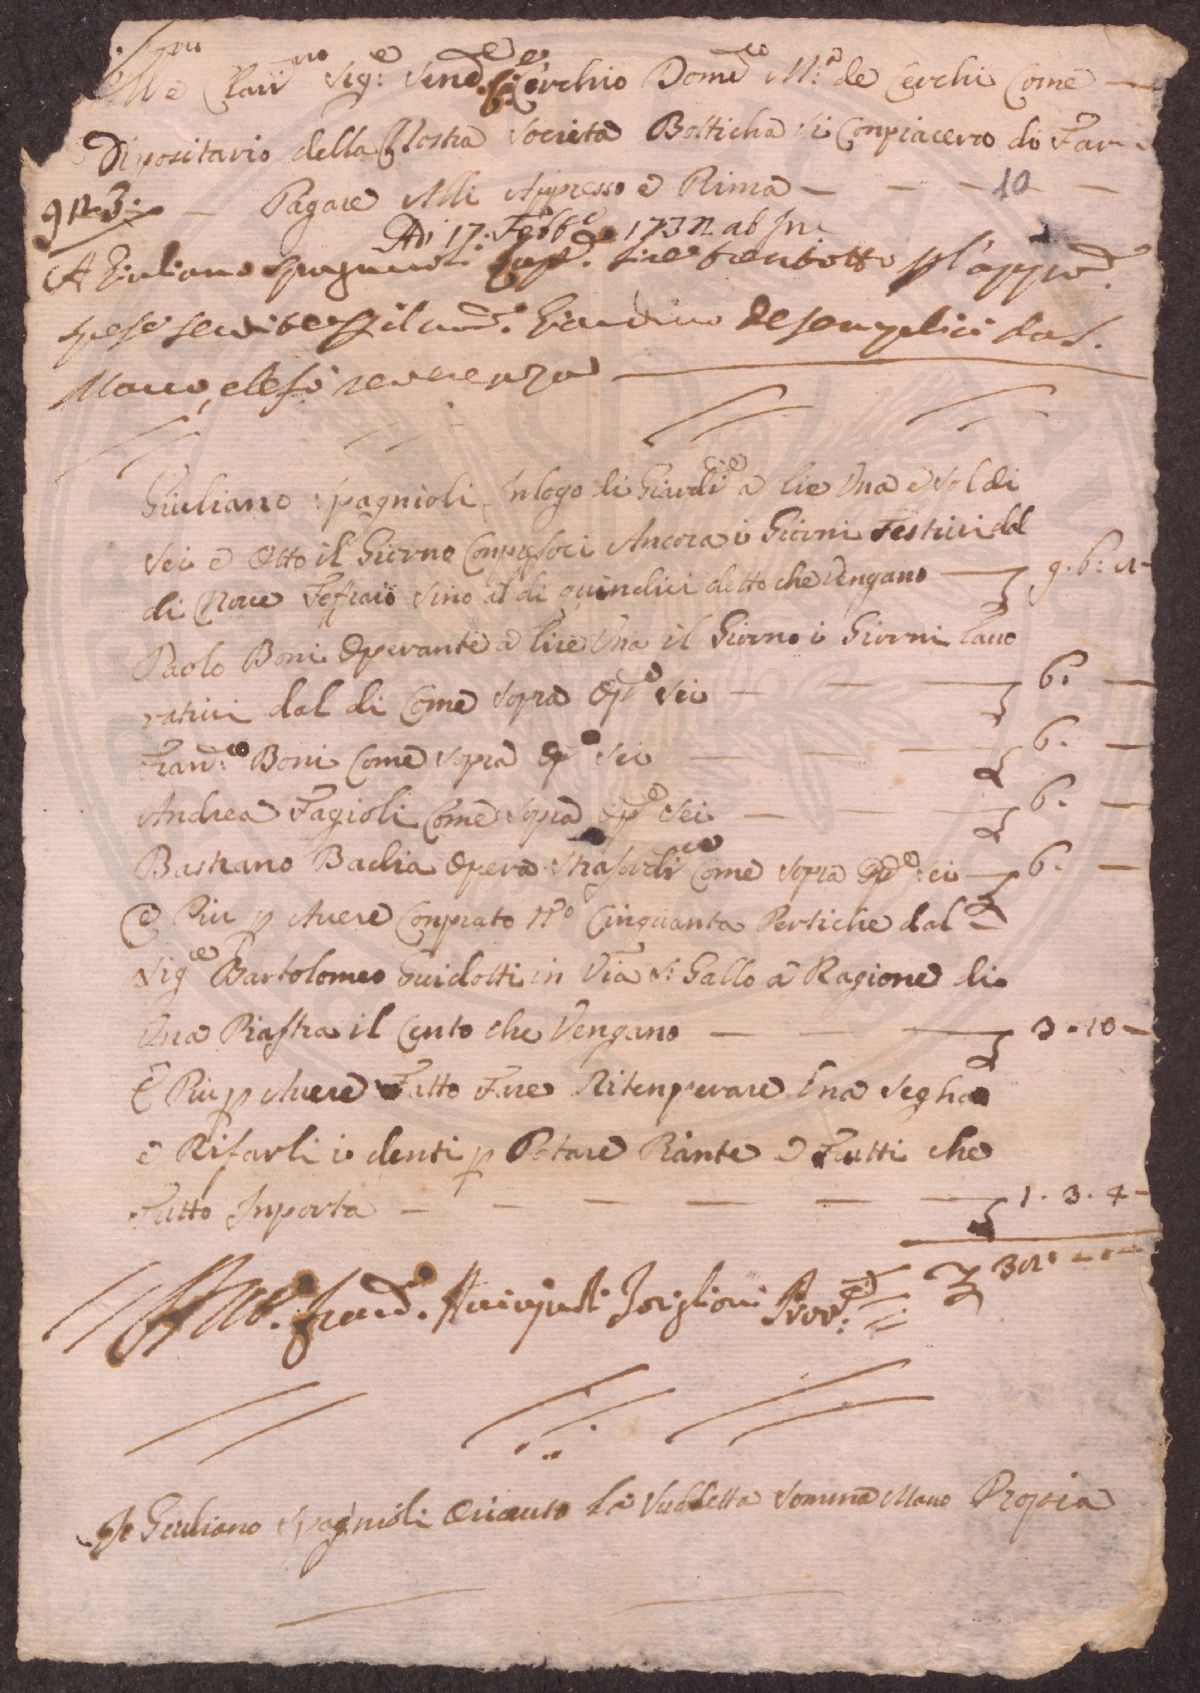 Ill.mo e Clari.mo Sig.e Vend.e Cerchio Dome.co M.a de Cerchi Come
Dipositario della Nostra Societa Botticha Si Conpiacerà di Far
Pagare Alli Appresso e Prima — 10
Adì 17: Febb.o 173 ab Inc
A Giuliano Spagnioli Cap.e lire trentotto p l'appie.
spese servite p il nro. Giardino de semplici da S.
Marco, e le fo reverenza
Giuliano Spagnioli in logo di Giardi.e a lire Una e Soldi
Sei e Otto il Giorno Conpresoci Ancora i Giorni Festivi dal
di Nove Feffraio Sino al di quindici detto che Vengano — 9.6:8
Paolo Boni Operante a lire Una il Giorno i Giorni Lavo
rativi dal di Come Sopra Op.e Sei — 6.
Fran.co Boni Come Sopra Op.e Sei — 6.
Andrea Fagioli Come Sopra Op.e Sei — 6.
Bastiano Badia Opera Strasordi.co Come Sopra Op.e Sei — 6.
E Piu p Avere Conprato N.o Cinquanta Pertiche dal
Sig.e Bartolomeo Guidotti in Via S: Gallo a Ragione di
Una Piastra il Cento che Vengano — 3.10
E Piu p Avere Fatto Fare Ritenperare Una Segha
e Rifarli i denti p Potare Piante e Frutti che
Tutto Inporta — 1.3.4
38
Fran. Prov.e
Io Giuliano Spagnioli O riceuto La Suddetta Somma Mano Propria